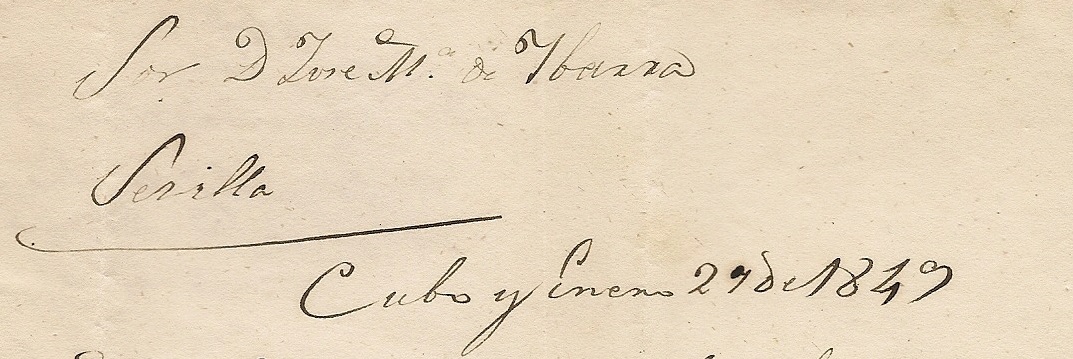 Sor D Jose M.ª de Ybarra
Sevilla
Cuba y Enero 29 de 1849